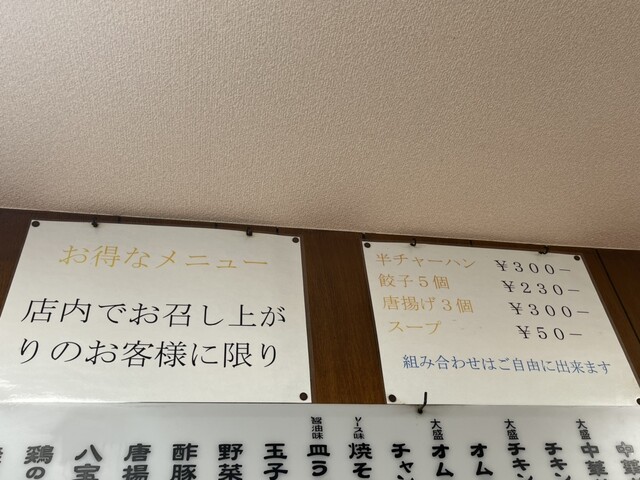 お得なメニュー
店内でお召し上が
りのお客様に限り
半チャーハン ￥３００−
餃子５個 ￥２３０−
唐揚げ３個 ￥３００−
スープ ￥５０−
組み合わせはご自由に出来ます
中華
大盛 中華
チキン
大盛 チキン
オム
大盛 オム
チャン
ソース味 焼そ
醤油味 皿う
玉子
野菜
酢豚
唐揚
八宝
鶏の